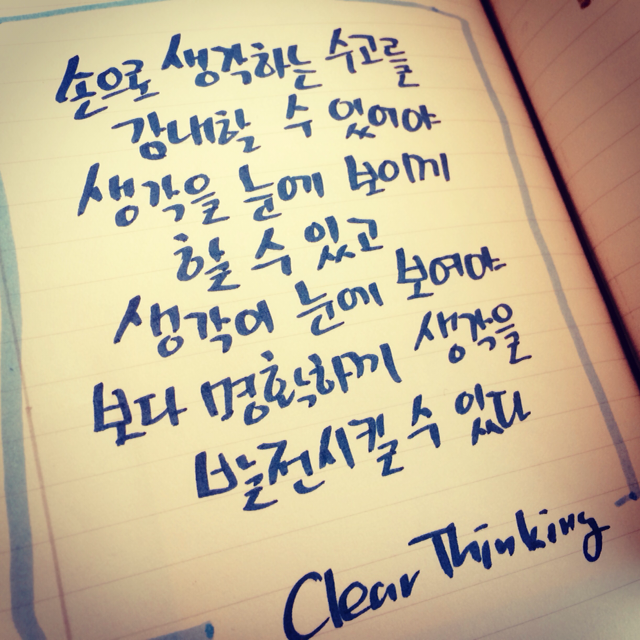 손으로 생각하는 수고를
감내할 수 있어야
생각을 눈에 보이게
할 수 있고
생각이 눈에 보여야
보다 명확하게 생각을
발전시킬 수 있다
Clear Thinking